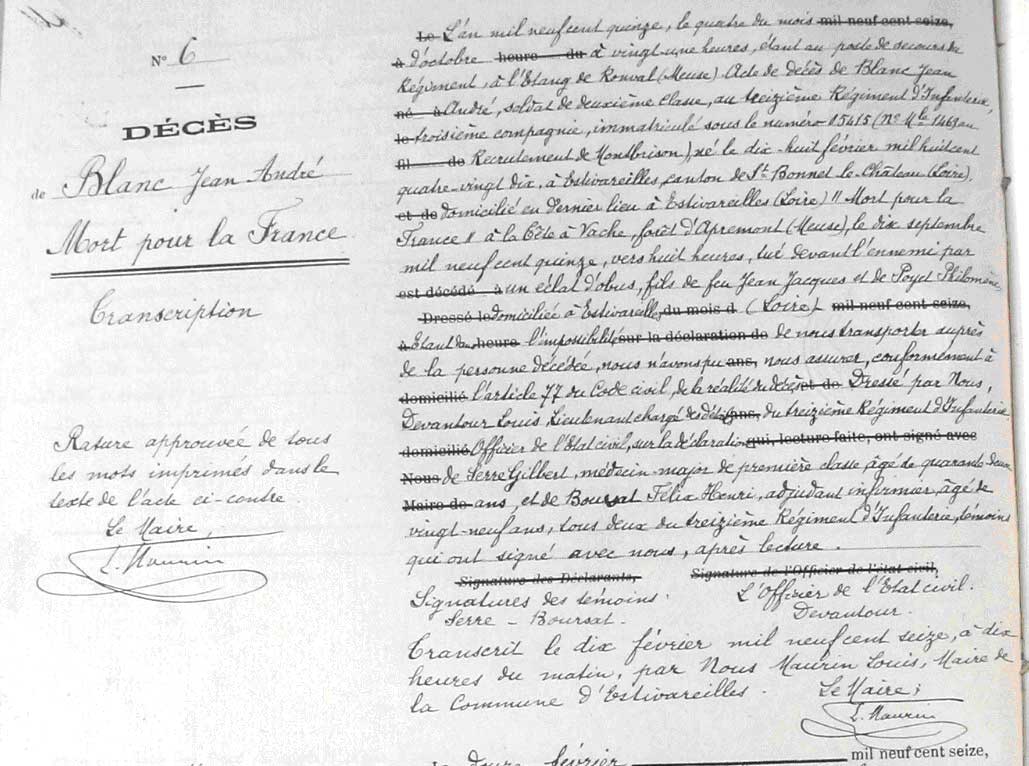 N° 6
DÉCÈS
de Blanc Jean André
Mort pour la France
Transcription
Rature approuvée de tous
les mots imprimés dans le
texte de l'acte ci-contre
Le Maire,
L. Maurin
Le L'an mil neuf cent quinze, le quatre du mois mil neuf cent seize,
à d'octobre heure du à vingt-une heures, étant au poste de secours du
Régiment, à l'Etang de Ronval (Meuse) Acte de décès de Blanc Jean
né à André, soldat de deuxième classe, au treizième Régiment d'Infanterie,
le troisième compagnie, immatriculé sous le numéro 05415 (N° Mle 1463 au
fil de Recrutement de Montbrison) né le dix-huit février mil huit cent
quatre-vingt dix, à Estivareilles, canton de St Bonnet-le-Château (Loire).
et de domicilié en dernier lieu à Estivareilles (Loire) "Mort pour la
France" à la Côte à Vache, forêt d'Apremont (Meuse), le dix septembre
mil neuf cent quinze, vers huit heures, tué devant l'ennemi par
est décédé à un éclat d'obus, fils de feu Jean Jacques et de Poyet Philomène
Dressé le domiciliée à Estivareilles du mois d (Loire) mil neuf cent seize,
à Etant dans heure l'impossibilité sur la déclaration de de nous transporter auprès
de la personne décédée, nous n'avons pu ans, nous assurer, conformément à
domicilié l'article 77 du Code civil, de la réalité du décès et de Dressé par Nous,
Devantour Louis, Lieutenant chargé des détails ans, du treizième Régiment d'Infanterie
domicilié Officier de l'Etat civil, sur la déclaration qui, lecture faite, ont signé avec
Nous de Serre Gilbert, médecin-major de première classe, âgé de quarante-deux
Maire de ans, et de Boursat Félix Henri, adjudant infirmier, âgé de
vingt-neuf ans, tous deux du treizième Régiment d'Infanterie, témoins
qui ont signé avec nous, après lecture.
Signature des Déclarants, Signature de l'Officier de l'état civil,
Signatures des témoins. L'Officier de l'Etat civil.
Serre – Boursat. Devantour.
Transcrit le dix février mil neuf cent seize, à dix
heures du matin, par Nous Maurin Louis, Maire de
la Commune d'Estivareilles. Le Maire;
L. Maurin
douze février mil neuf cent seize,